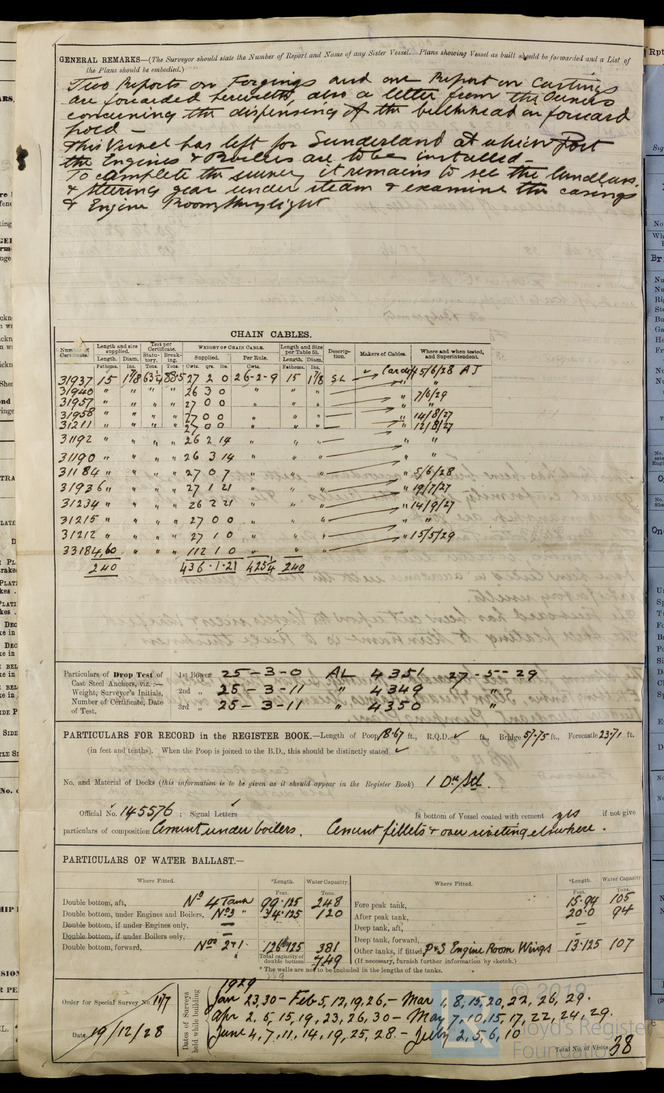 GENERAL REMARKS—(The Surveyor should state the Number of Report and Name of any Sister Vessel. Plans showing Vessel as built should be forwarded and a List of
the Plans should be embodied.)
Two Reports on Forgings and one Report on Castings
are forwarded herewith, also a letter from the Owners
concerning the dispensing of the bulkhead in forward
hold —
This Vessel has left for Sunderland at which Port
the Engines & Boilers are to be installed —
To complete the survey it remains to see the windlass
& steering gear under steam & examine the casings
& Engine Room Skylight
CHAIN CABLES.
Number of Certificate. Length and size supplied. Test per Certificate. WEIGHT OF CHAIN CABLE. Length and Size per Table 53. Description. Makers of Cables. Where and when tested, and Superintendent.
Length. Diam. Statutory. Breaking. Supplied. Per Rule. Length. Diam.
Fathoms. Ins. Tons. Tons. Cwts. qrs. lbs. Cwts. Fathoms. Ins.
31937 15 1 7/8 27 2 0 26-2-9 15 1 7/8 SL Cardiff 5/6/28 AJ
31940 " " " " 26 3 0 " " " "
31957 " " " " 27 0 0 " " " " 7/6/29
31958 " " " " 27 0 0 " " " " 14/8/27
31211 " " " " 27 0 0 " " " " 12/8/27
31192 " " " " 26 2 14 " " " " "
31190 " " " " 26 3 14 " " " " "
31184 " " " " 27 0 7 " " " " 5/6/28
31936 " " " " 27 1 21 " " " " 19/7/27
31234 " " " " 26 2 21 " " " " 14/9/27
31215 " " " " 27 0 0 " " " " "
31212 " " " " 27 1 0 " " " " 15/5/29
33184 60 " " " 112 1 0 " 60 "
240 436 . 1 . 21 425 1/4 240
Particulars of Drop Test of Cast Steel Anchors, viz.:— Weight, Surveyor's Initials, Number of Certificate, Date of Test.
1st Bower 25 - 3 - 0 AL 4351 27 - 5 - 29
2nd " 25 - 3 - 11 " 4349 "
3rd " 25 - 3 - 11 " 4350 "
PARTICULARS FOR RECORD in the REGISTER BOOK.—Length of Poop 18.67 ft., R.Q.D. ✓ ft., Bridge 57.75 ft., Forecastle 23.71 ft.
(in feet and tenths). When the Poop is joined to the B.D., this should be distinctly stated ✓
No. and Material of Decks (this information is to be given as it should appear in the Register Book) 1 Dk Stl.
Official No. 145576 ; Signal Letters Is bottom of Vessel coated with cement yes if not give
particulars of composition Cement under boilers. Cement fillets & over riveting elsewhere.
PARTICULARS OF WATER BALLAST.—
Where Fitted. *Length. Water Capacity Where Fitted. *Length. Water Capacity
Feet. Tons. Feet. Tons.
Double bottom, aft, No 4 Tank 99.125 248 Fore peak tank, 15.94 105
Double bottom, under Engines and Boilers, No 3 " 34.125 120 After peak tank, 20.0 94
Double bottom, if under Engines only, — Deep tank, aft, —
Double bottom, if under Boilers only, — Deep tank, forward,
Double bottom, forward, No 2 & 1. 126.125 381 Other tanks, if fitted, P & S Engine Room Wings 13.125 107
Total capacity of double bottom 749 (If necessary, furnish further information by sketch.)
* The wells are not to be included in the lengths of the tanks.
Order for Special Survey No. 1117
Date 19/12/28
Dates of Surveys held while building
1929
Jan 23, 30 – Feb 5, 12, 19, 26, – Mar 1, 8, 15, 20, 22, 26, 29.
Apr 2, 6, 15, 19, 23, 26, 30 – May 7, 10, 15, 17, 22, 24, 29.
June 4, 7, 11, 14, 19, 25, 28 – July 2, 5, 6, 10
Total No. of Visits 38
© 2019
Lloyd's Register
Foundation